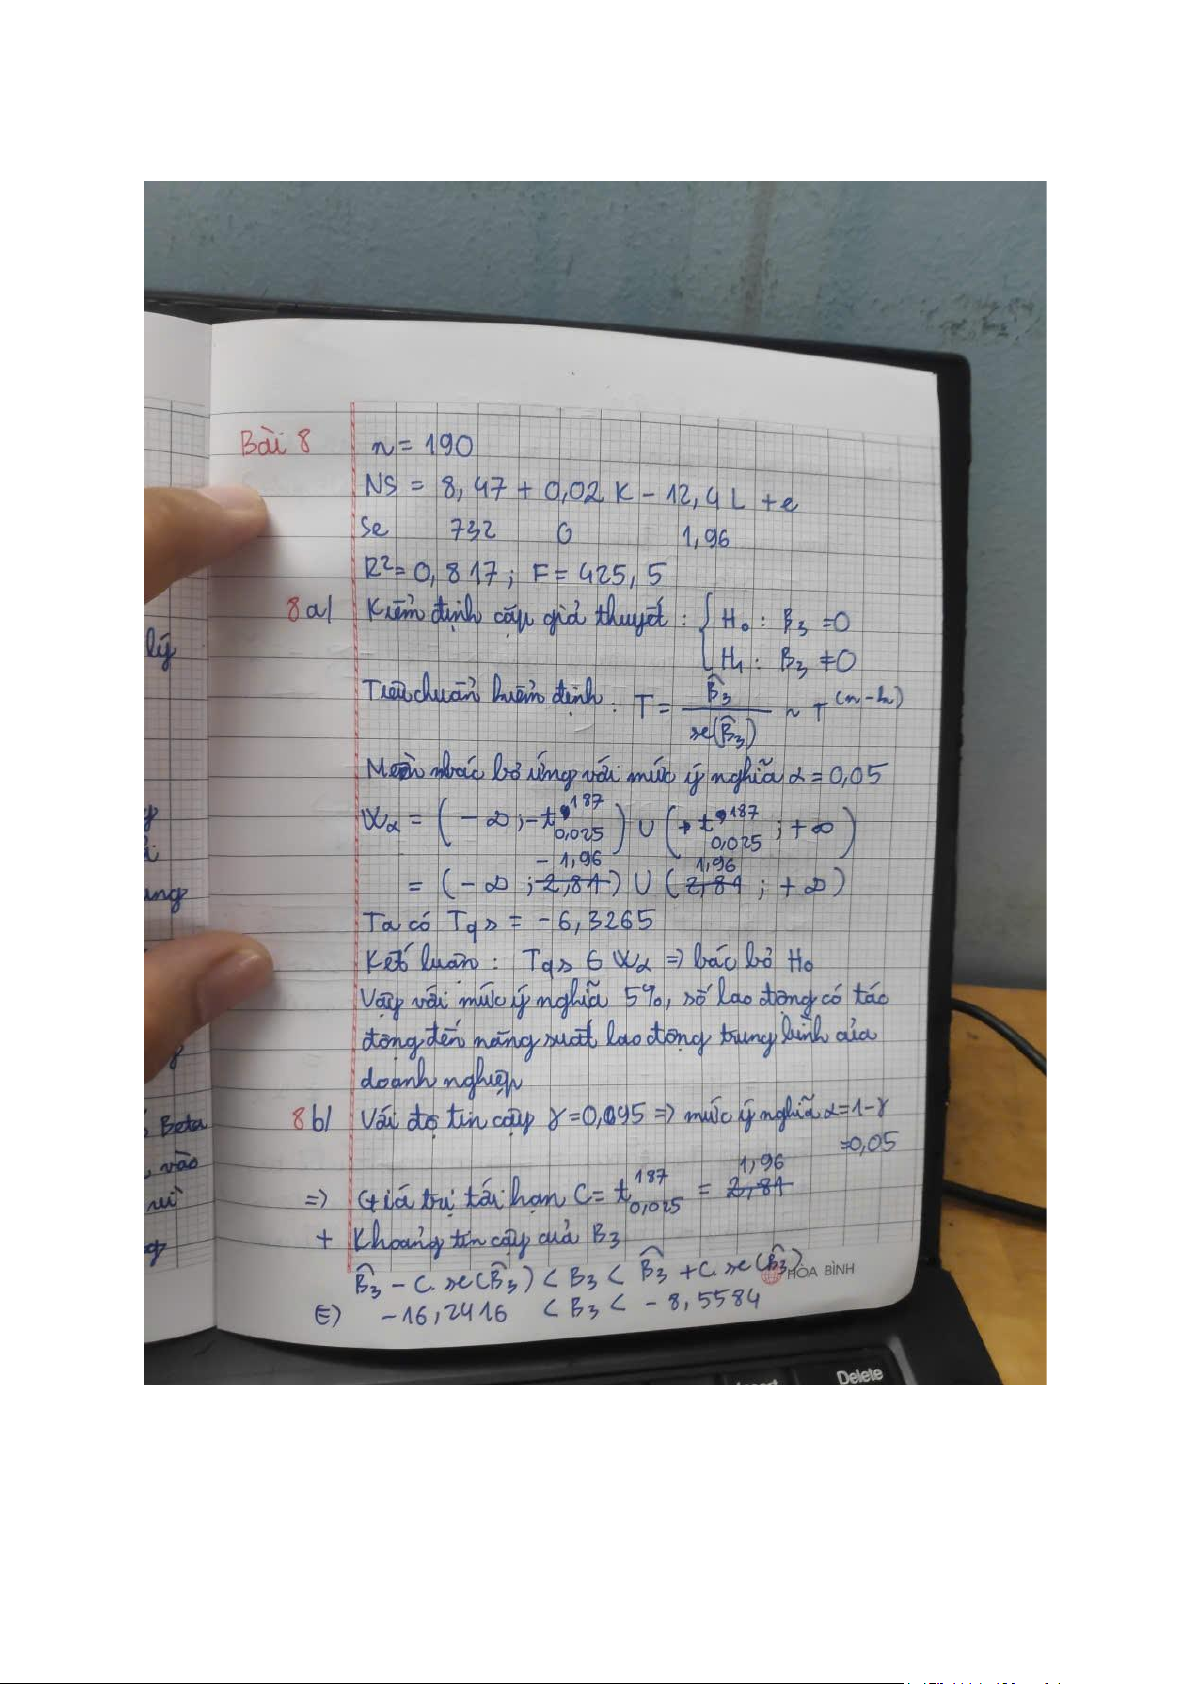 Bài 8 n = 190
NS = 8,47 + 0,02 K - 12,4 L + e
Se 732 0 1,96
R²= 0,817; F = 425,5
8a/ Kiểm định cặp giả thuyết: { H₀: B₃ = 0
H₁: B₃ ≠ 0
Tiêu chuẩn kiểm định: T = B̂₃ / se(B̂₃) ~ T^(n-k)
Miền bác bỏ ứng với mức ý nghĩa α = 0,05
Wα = (-∞; -t^187_0,025) ∪ (+t^187_0,025; +∞)
-1,96 1,96
= (-∞; 2,84) ∪ (2,84; +∞)
Ta có Tqs = -6,3265
Kết luận: Tqs ∈ Wα => bác bỏ H₀
Vậy với mức ý nghĩa 5%, số lao động có tác
động đến năng suất lao động trung bình của
doanh nghiệp
lý
ung
8b/ Với độ tin cậy γ = 0,095 => mức ý nghĩa α = 1 - γ
= 0,05
Beta
vào
1,96
=> Giá trị tới hạn C = t^187_0,025 = 2,84
+ Khoảng tin cậy của B₃
B̂₃ - C. se(B̂₃) < B₃ < B̂₃ + C. se(B̂₃)
HÒA BÌNH
(=) -16,2416 < B₃ < -8,5584
Delete